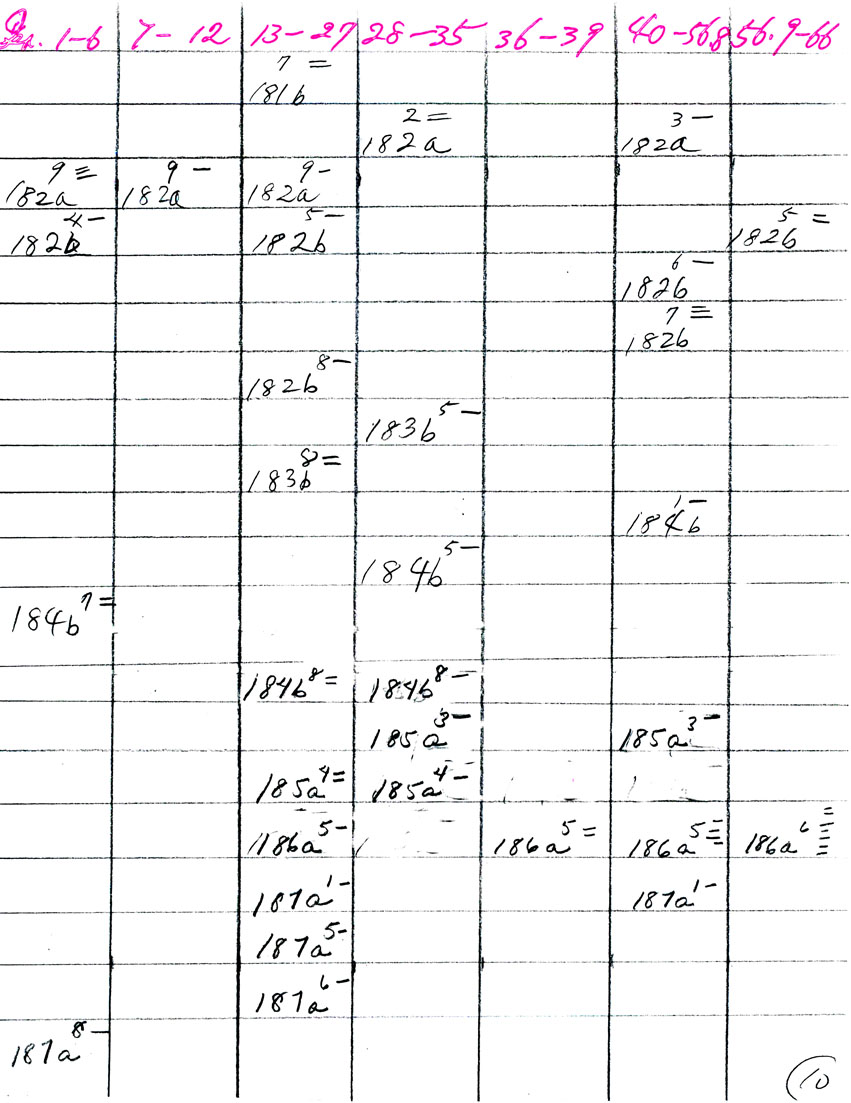 Is. 1-6 7-12 13-27 28-35 36-39 40-56.8 56.9-66
181b⁷ =
182a² = 182a³ –
182a⁹ ≡ 182a⁹ – 182a⁹ –
182b⁴ – 182b⁵ – 182b⁵ =
182b⁶ –
182b⁷ ≡
182b⁸ –
183b⁵ –
183b⁸ =
184b¹ –
184b⁵ –
184b⁷ =
184b⁸ = 184b⁸ –
185a³ – 185a³ –
185a⁴ = 185a⁴ –
186a⁵ – 186a⁵ = 186a⁵ ≡ 186a⁶
187a¹ – 187a¹ –
187a⁵ –
187a⁶ –
187a⁸ –
10